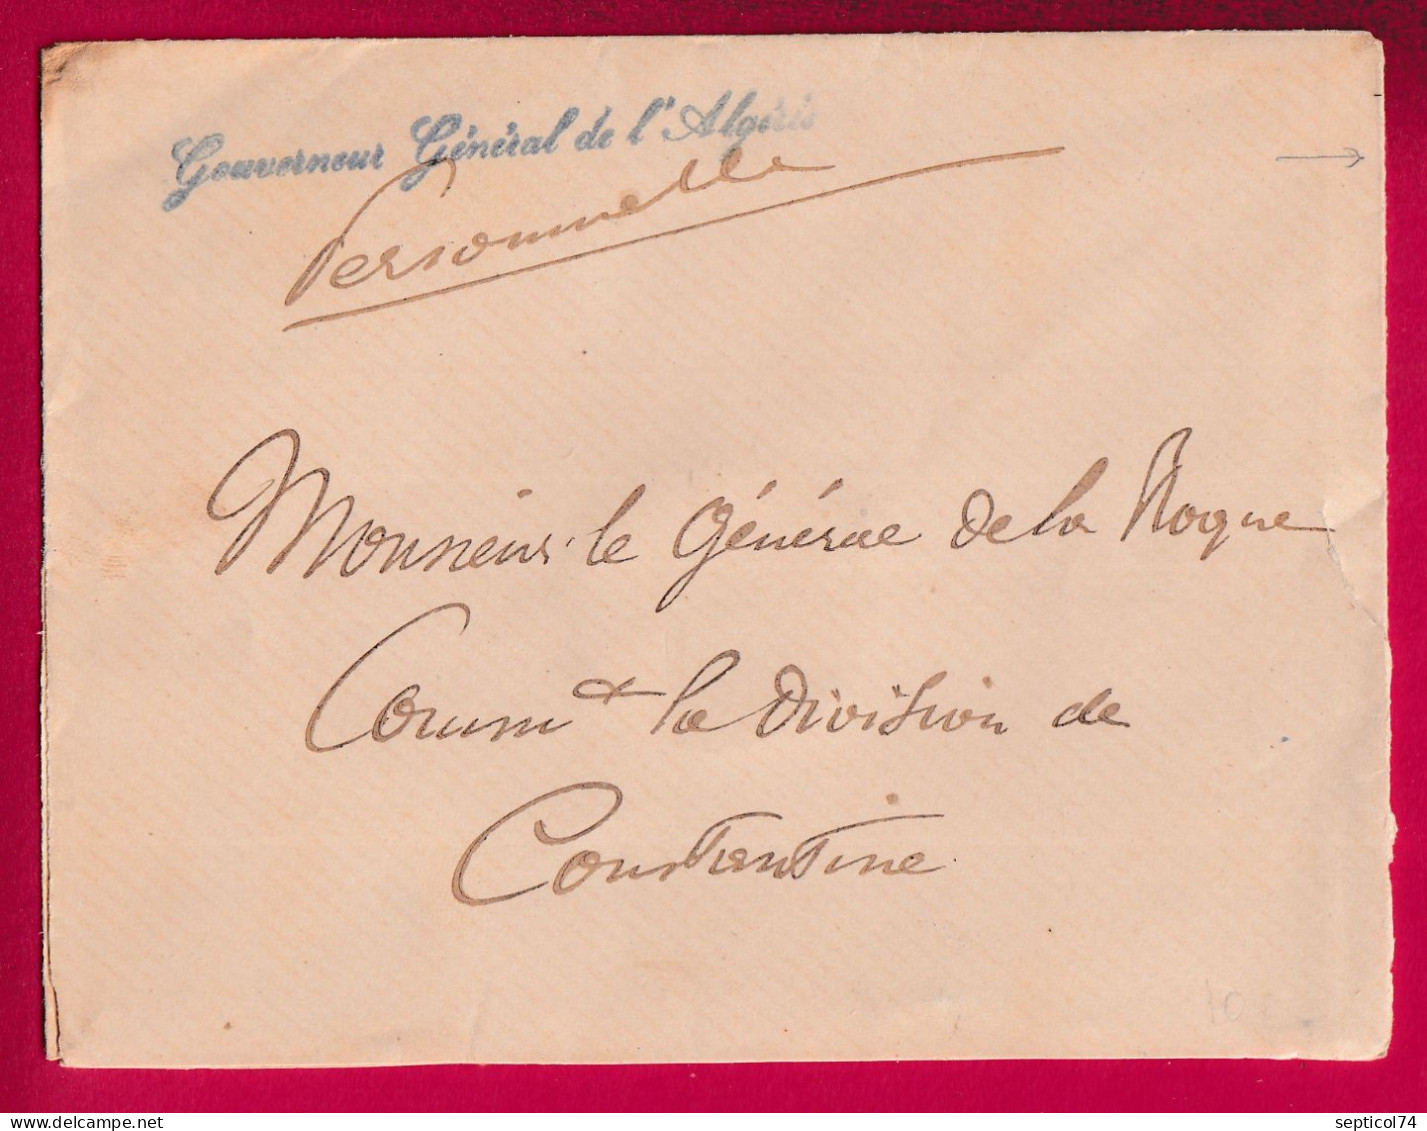 Gouverneur Général de l'Algérie
Personnelle
Monsieur le Général de la Roque
Comm^t la Division de
Constantine
10
www.delcampe.net
septicol74